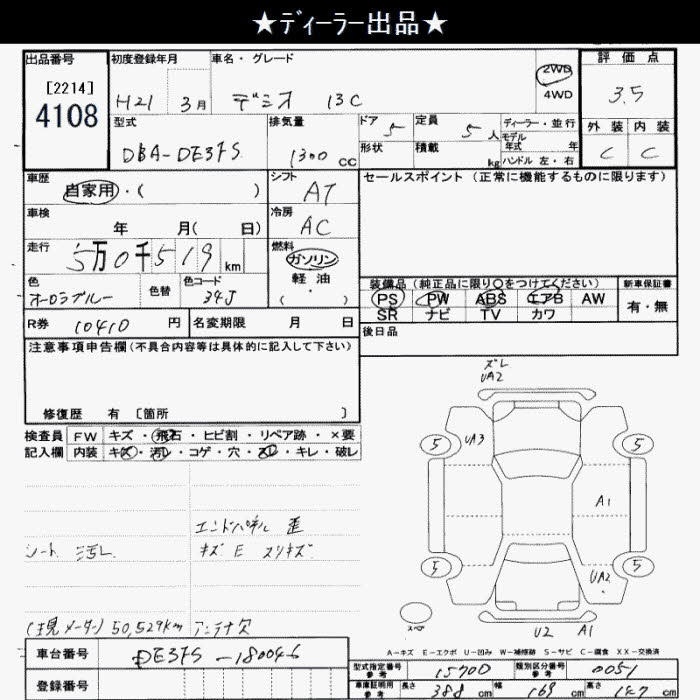 ★ディーラー出品★
出品番号 初度登録年月 車名・グレード 評価点
[2214] 4108 H21 3月 デミオ 13C 2WD 4WD 3.5
型式 排気量 ドア 定員 ディーラー・並行 外装 内装
DBA-DE3FS 1300 CC 5 5人 モデル年式 年 C C
形状 積載 kg ハンドル 左・右
車歴 シフト セールスポイント (正常に機能するものに限ります)
自家用・( ) AT
車検 冷房
年 月( 日) AC
走行 燃料
5万0千519 km ガソリン
軽油
色 色替 色コード ・( ) 装備品 (純正品に限り○をつけてください) 新車保証書
オーロラブルー 34J PS PW ABS エアB AW 有・無
SR ナビ TV カワ
R券 10410 円 名変期限 月 日 後日品
注意事項申告欄(不具合内容等は具体的に記入して下さい)
ズレ
UA2
修復歴 有 [箇所 ]
検査員 FW キズ・飛石・ヒビ割・リペア跡・×要
記入欄 内装 キズ・汚レ・コゲ・穴・スレ・キレ・破レ
5 UA3 5
A1
エンドパネル 歪
シート 汚レ キズ E スリキズ
5 UA2 5
スペア
(現メーター) 50,529km アンテナ欠
U2 A1
A-キズ E-エクボ U-凹み W-補修跡 S-サビ C-腐食 XX-交換済
車台番号 DE3FS-180046
型式指定番号 参考 15700 類別区分番号 参考 0051
登録番号 車庫証明用 参考 長さ 388 cm 幅 169 cm 高さ 147 cm